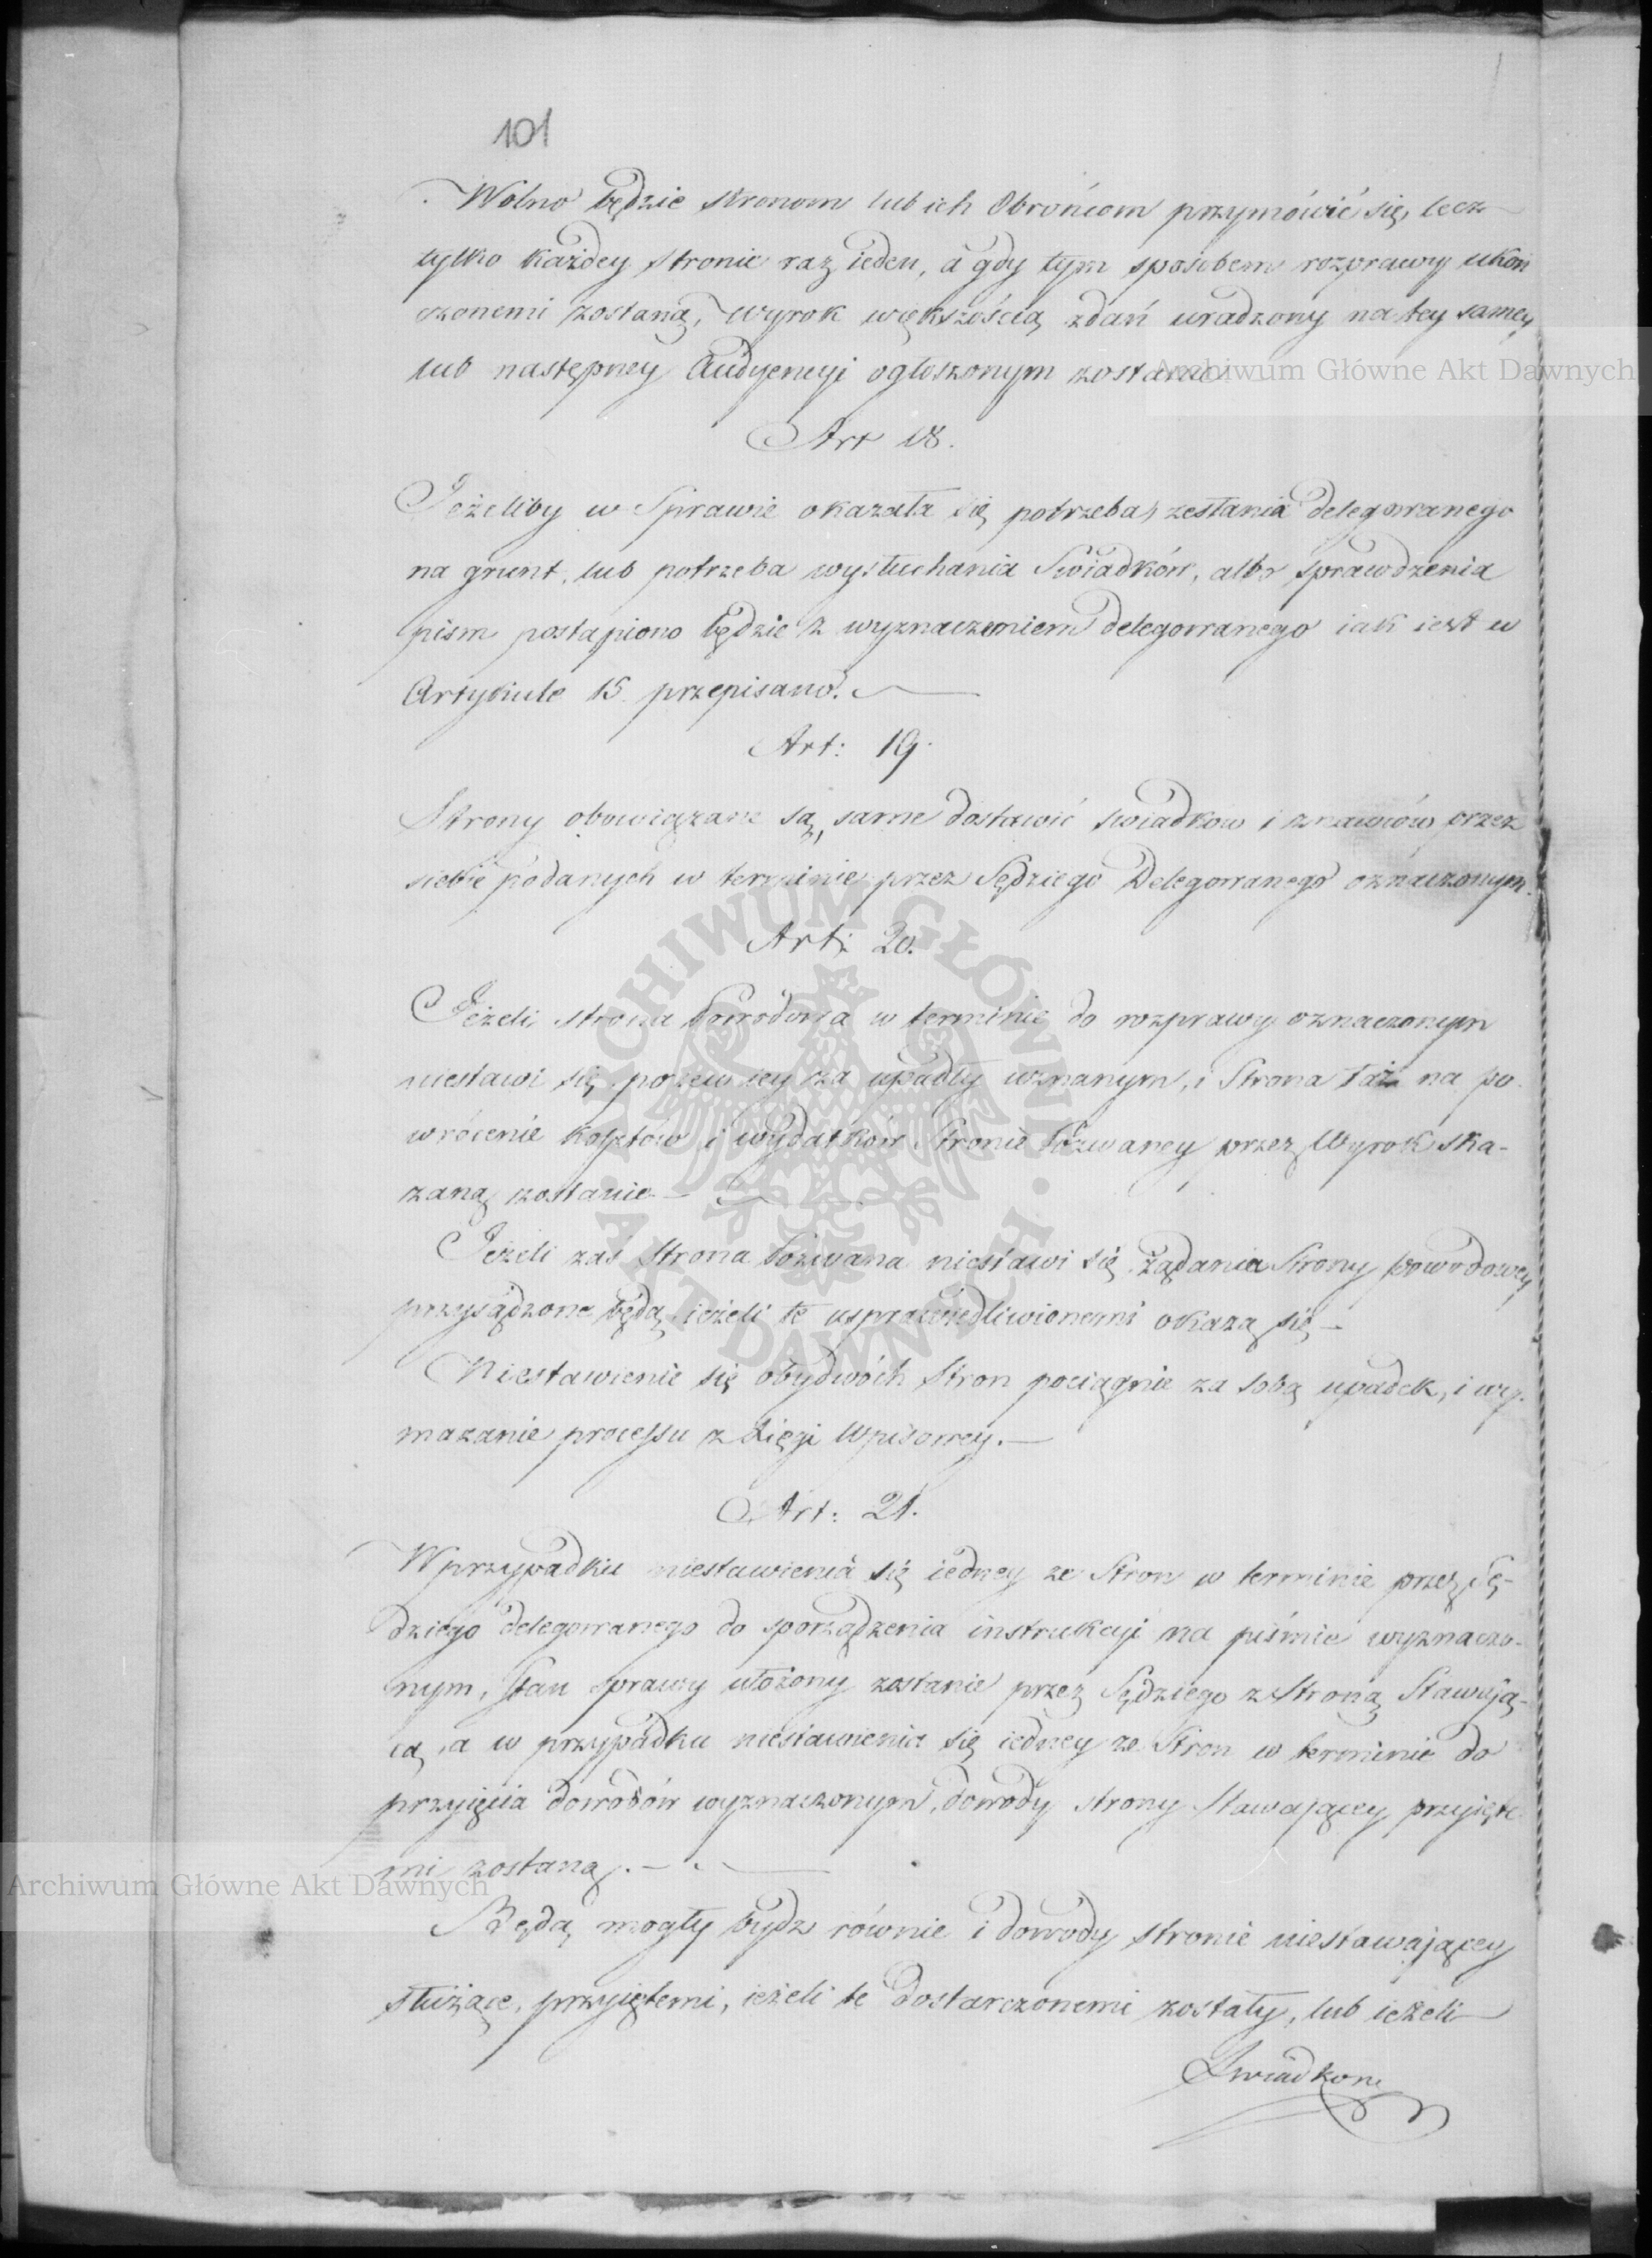 101
Wolno będzie stronom lub ich Obrońcom przymówić się, lecz
tylko każdey stronie raz ieden, a gdy tym sposobem rozprawy ukoń
czonemi zostaną, wyrok większością zdań uradzony na tey samey
lub następney Audyencyi ogłoszonym zostanie
Archiwum Główne Akt Dawnych
Art 18.
Jeżeliby w Sprawie okazała się potrzeba zesłania delegowanego
na grunt, lub potrzeba wysłuchania Swiadków, albo sprawdzenia
pism postąpiono będzie z wyznaczeniem delegowanego iak iest w
Artykule 15 przepisano.
Art: 19.
Strony obowiązane są, same dostawić swiadkow i znawców przez
siebie podanych w terminie przez Sędziego Delegowanego oznaczonym.
Art: 20.
Jeżeli strona Powodowa w terminie do rozprawy oznaczonym
niestawi się, pozew iey za upadły uznanym, i Strona taż na po-
wrócenie kosztów i wydatków Stronie Pozwaney przez Wyrok ska-
zaną zostanie —
Jeżeli zas Strona Pozwana niestawi się, żądania Strony powodowey
przysądzone będą, ieżeli te usprawiedliwionemi okażą się —
Niestawienie się obydwóch Stron pociągnie za sobą upadek, i wy-
mazanie processu z Xięgi Wpisowey. —
Art: 21.
W przypadku niestawienia się iedney ze Stron w terminie przez Sę-
dziego delegowanego do sporządzenia instrukcyi na piśmie wyznaczo-
nym, Stan sprawy ułożony zostanie przez Sędziego z Stroną Stawają-
cą, a w przypadku niestawienia się iedney ze Stron w terminie do
przyięcia dowodów wyznaczonym, dowody strony stawaiącey przyięte-
mi zostaną. —
Archiwum Główne Akt Dawnych
Będą mogły bydz równie i dowody stronie niestawaiącey
służące, przyiętemi, ieżeli te dostarczonemi zostały, lub ieżeli
Swiadkow
ARCHIWUM GŁÓWNE · AKT DAWNYCH ·